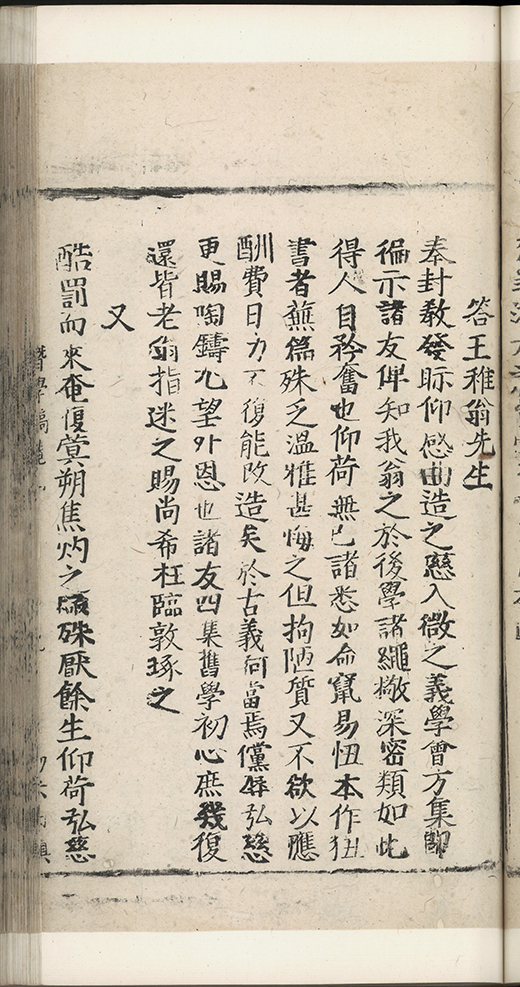 答王稚翁先生
奉封教發眎仰感曲造之慈入微之義學會方集卽
徧示諸友俾知我翁之於後學諸繩檄深密類如此
得人自矜奮也仰荷無已諸悉如命竄易忸本作狃
書者蕪篇殊乏溫雅甚悔之但拘陋質又不欲以應
酬費日力不復能改造矣於古義何當焉儻辱弘慈
更賜陶鑄尤望外恩也諸友四集舊學初心庶幾復
還皆老翁指迷之賜尚希枉臨敦琢之
又
酷罰而來奄復蓂朔焦灼之 殊厭餘生仰荷弘慈